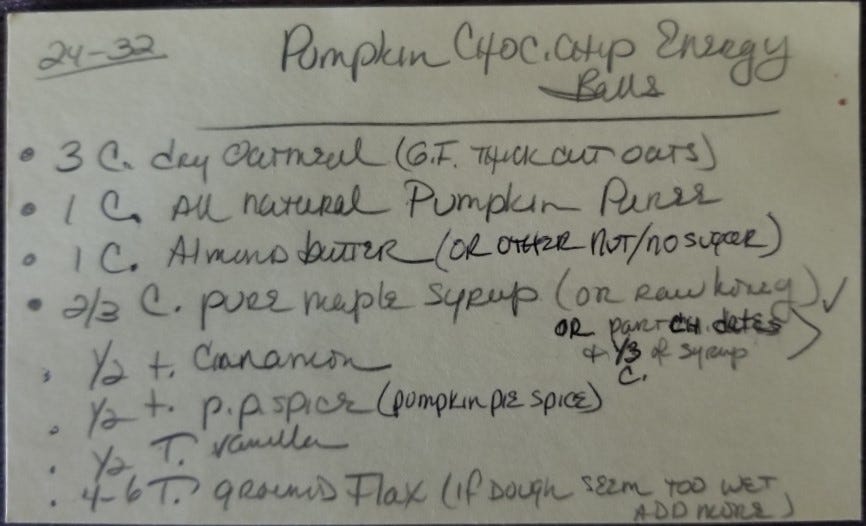 24-32
Pumpkin CHOC. CHIP Energy
Balls
• 3 C. dry Oatmeal (G.F. THICK CUT OATS)
• 1 C. All natural Pumpkin Puree
• 1 C. Almond butter (OR OTHER NUT/NO SUGAR)
• 2/3 C. pure maple syrup (or raw honey) ✓
OR part CH. dates
+ 1/3 of syrup
C.
• 1/2 t. Cinnamon
• 1/2 t. p.p. spice (pumpkin pie spice)
• 1/2 T. vanilla
• 4-6 T. ground Flax (IF DOUGH SEEM TOO WET
ADD MORE)